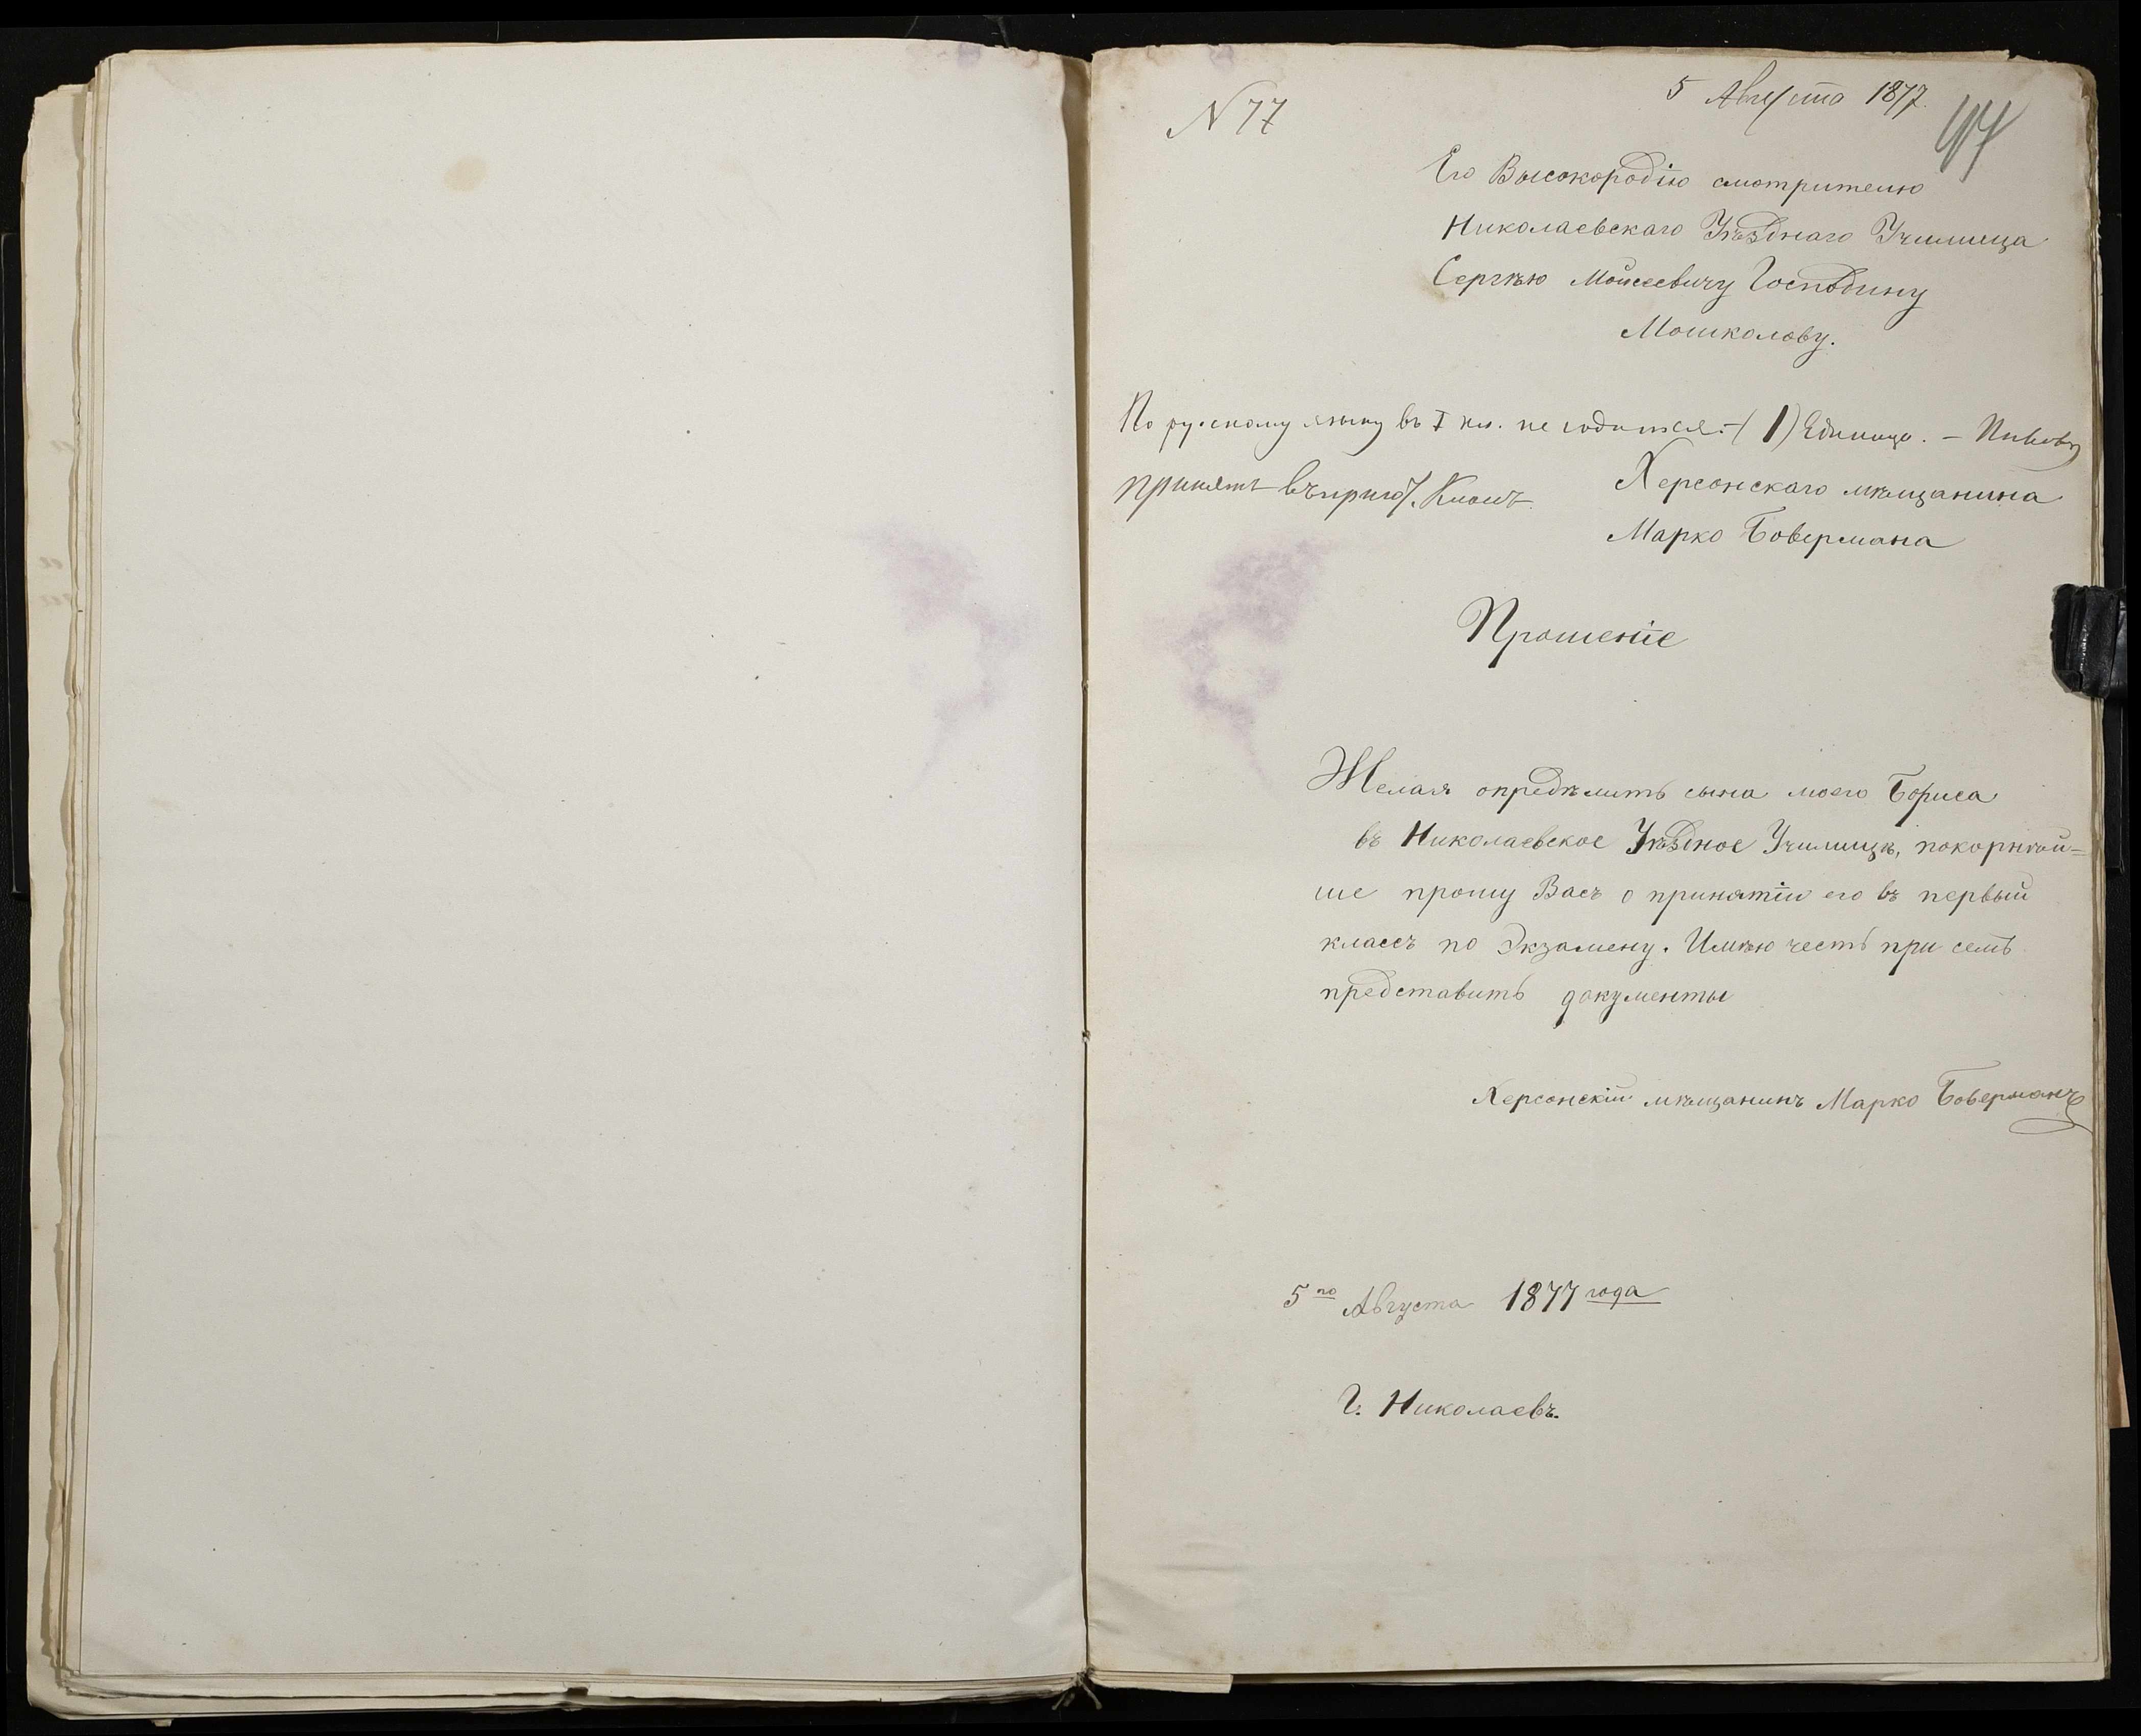 N 77
5 Августа 1877.
Его Высокородію смотрителю
Николаевскаго Уѣзднаго Училища
Сергѣю Мойсеевичу Господину
Мошколову.
По русскому языку въ I кл. не годится. (1) Единица. –
принятъ въ приг. Классъ.
Херсонскаго мѣщанина
Марко Бовермана
Прошеніе
Желая опредѣлить сына моего Бориса
въ Николаевское Уѣздное Училищѣ, покорнѣй=
ше прошу Васъ о принятіи его въ первый
классъ по Экзамену. Имѣю честь при семъ
представить документы
Херсонскій мѣщанинъ Марко Боверманъ
5го Августа 1877 года
Г. Николаевъ.